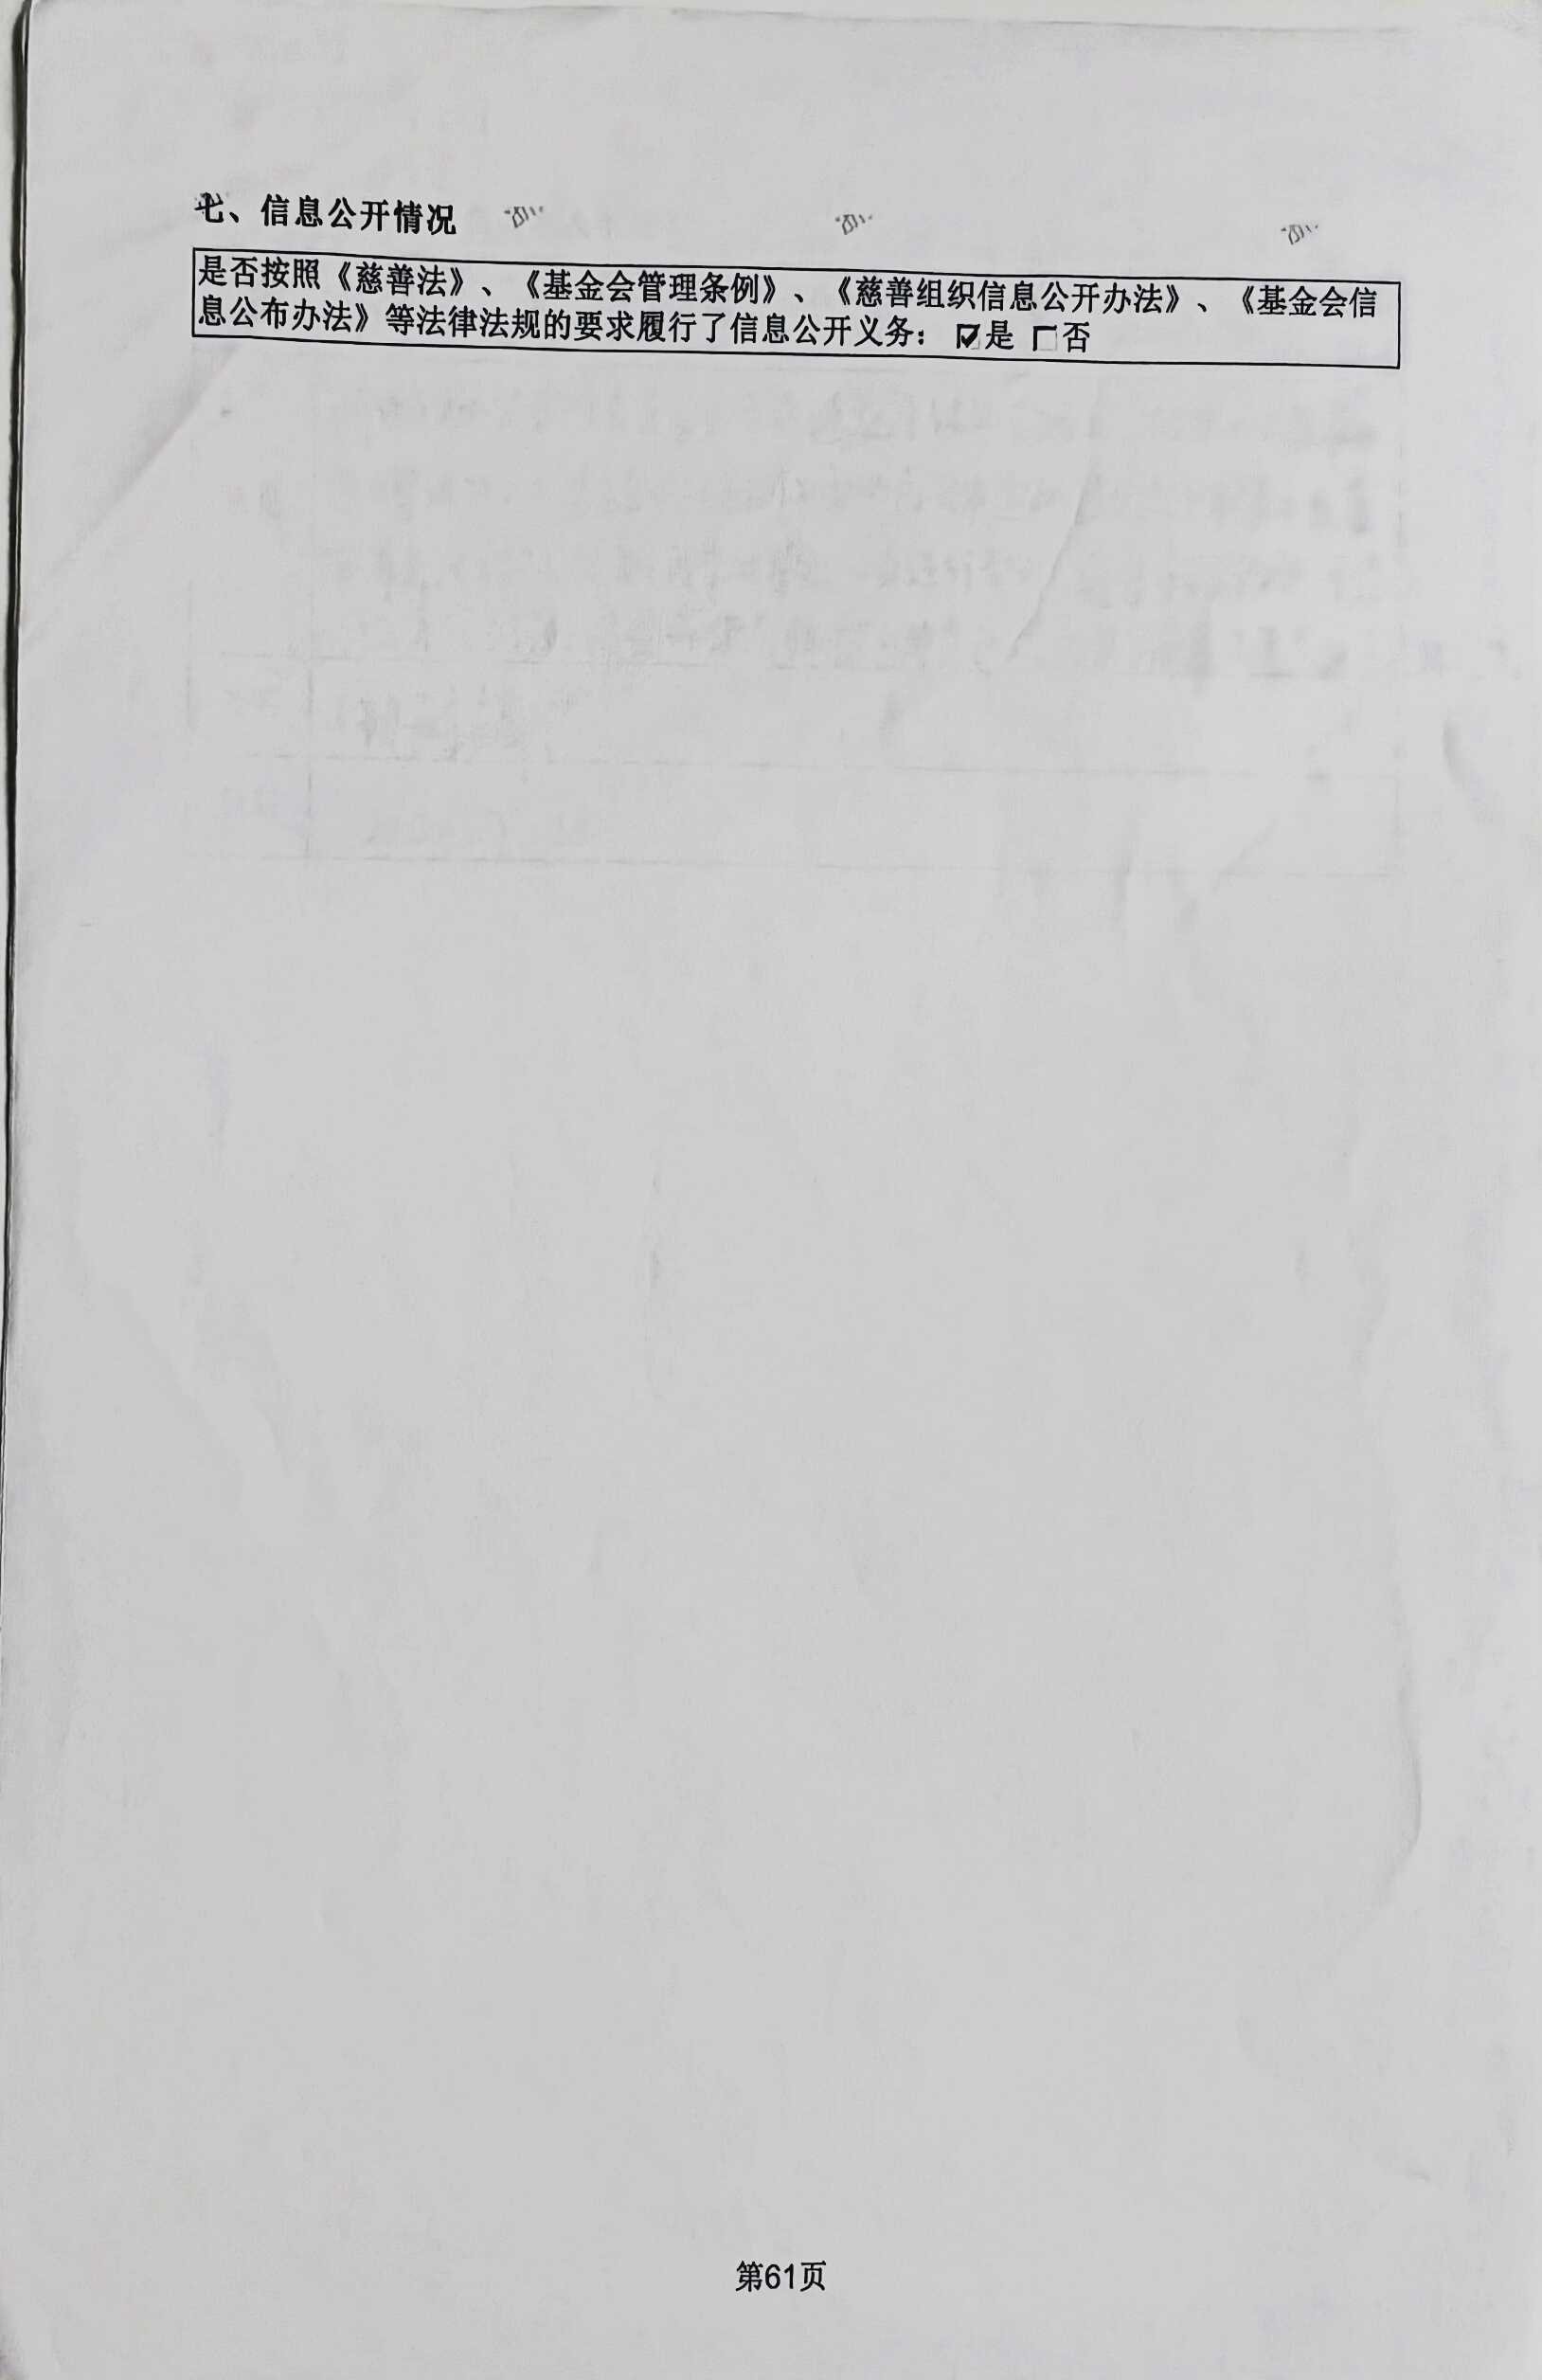 七、信息公开情况
是否按照《慈善法》、《基金会管理条例》、《慈善组织信息公开办法》、《基金会信
息公布办法》等法律法规的要求履行了信息公开义务: ☑是 □否
第61页